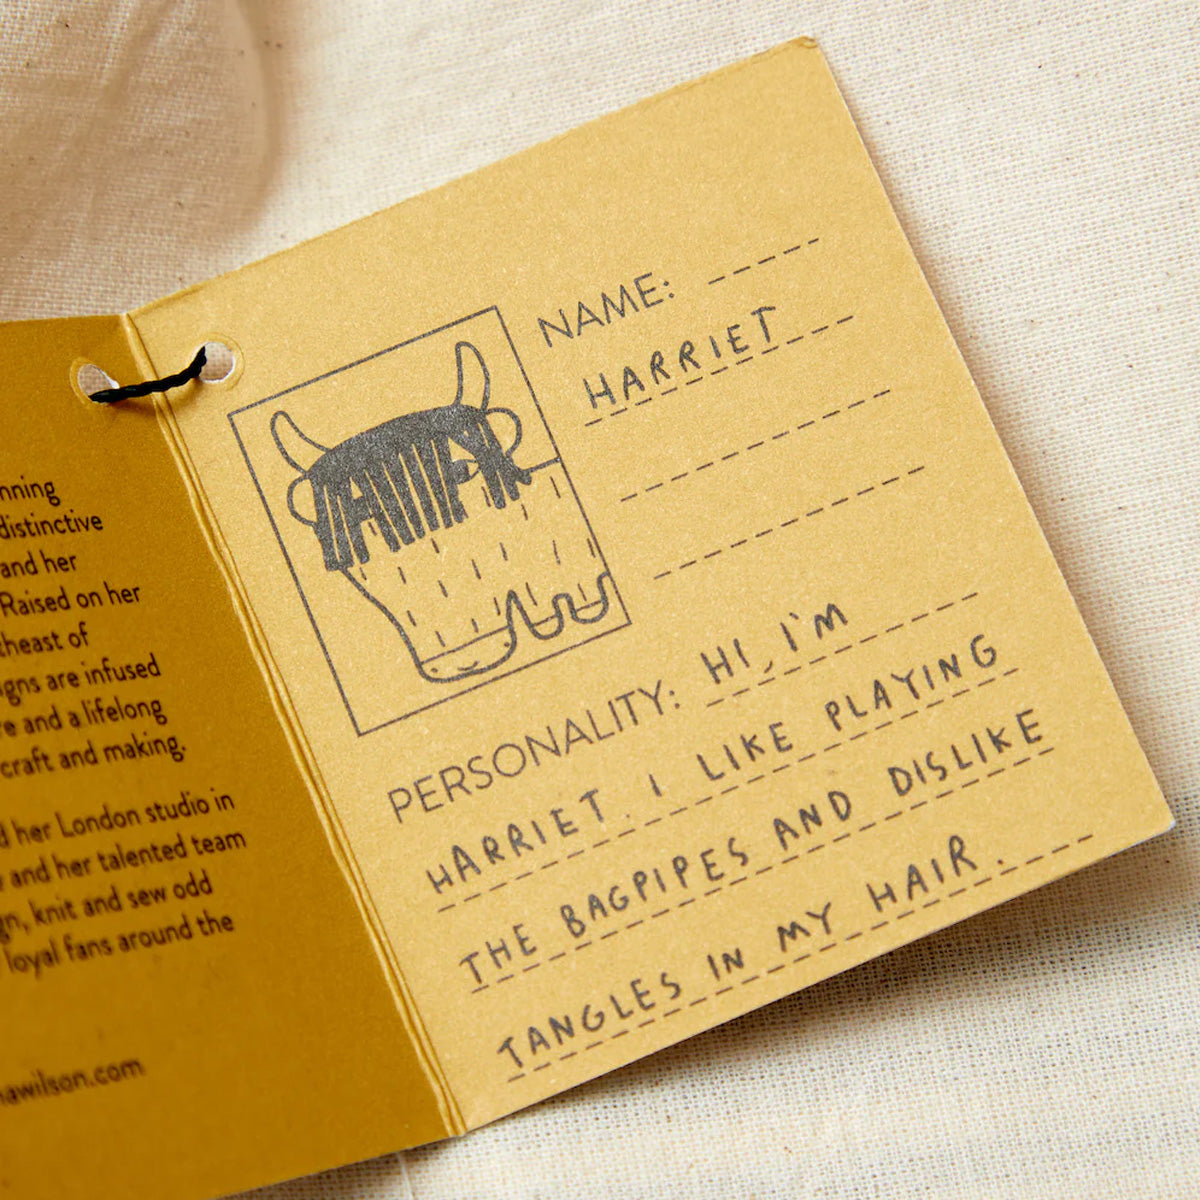 nning
distinctive
and her
Raised on her
theast of
igns are infused
re and a lifelong
craft and making.
d her London studio in
r and her talented team
gn, knit and sew odd
loyal fans around the
nawilson.com
NAME:
HARRIET
PERSONALITY: HI, I'M
HARRIET. I LIKE PLAYING
THE BAGPIPES AND DISLIKE
TANGLES IN MY HAIR.